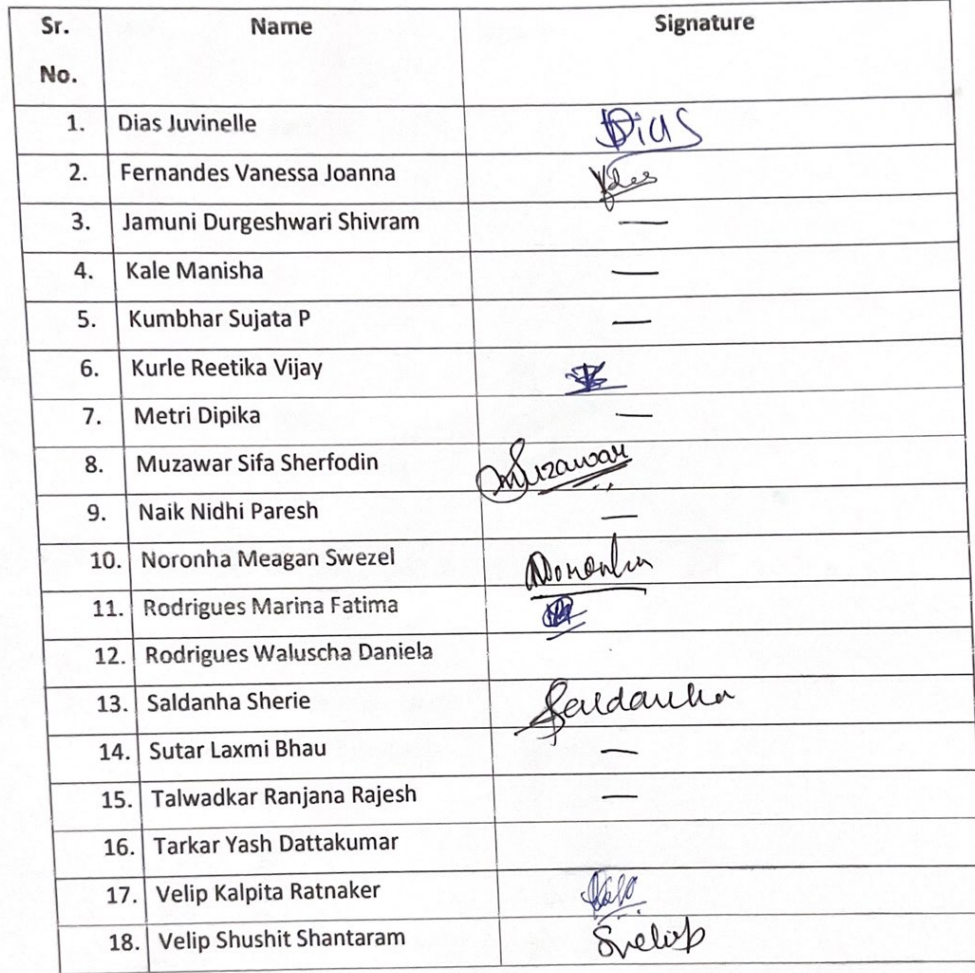 Sr. No. Name Signature
1. Dias Juvinelle Dias
2. Fernandes Vanessa Joanna
3. Jamuni Durgeshwari Shivram —
4. Kale Manisha —
5. Kumbhar Sujata P —
6. Kurle Reetika Vijay
7. Metri Dipika —
8. Muzawar Sifa Sherfodin Muzawar
9. Naik Nidhi Paresh —
10. Noronha Meagan Swezel Noronha
11. Rodrigues Marina Fatima
12. Rodrigues Waluscha Daniela
13. Saldanha Sherie Saldanha
14. Sutar Laxmi Bhau —
15. Talwadkar Ranjana Rajesh —
16. Tarkar Yash Dattakumar
17. Velip Kalpita Ratnaker
18. Velip Shushit Shantaram Svelip